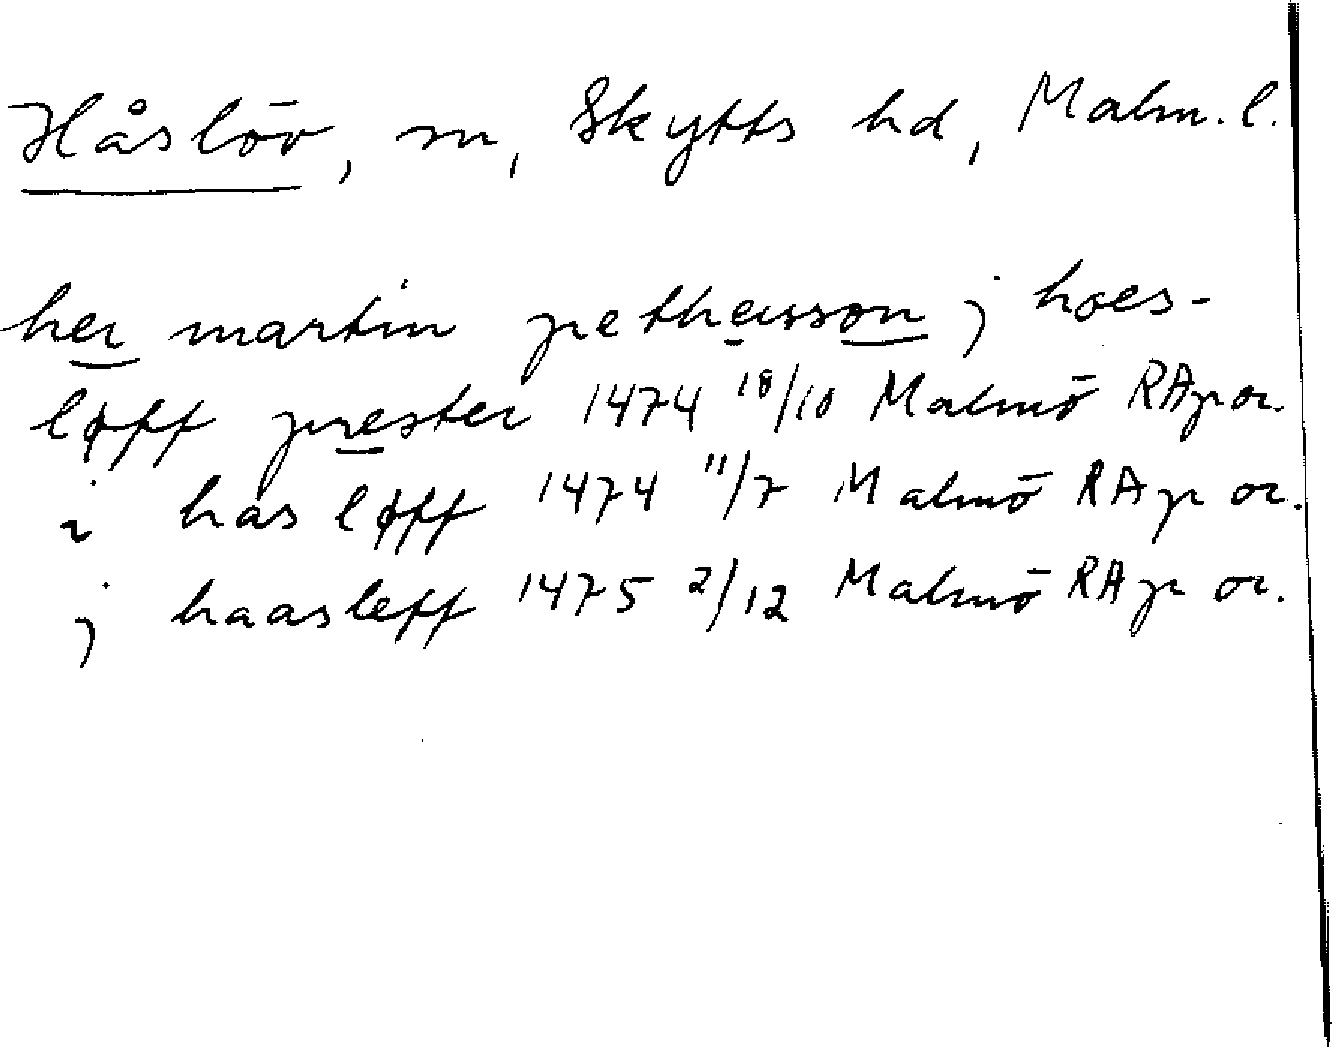 Håslöv, sn, Skytts hd, Malm. l.
her martin pethersson j hoes-
løff prester 1474 18/10 Malmö RAp or.
i hasløff 1474 11/7 Malmö RAp or.
j haasleff 1475 2/12 Malmö RAp or.